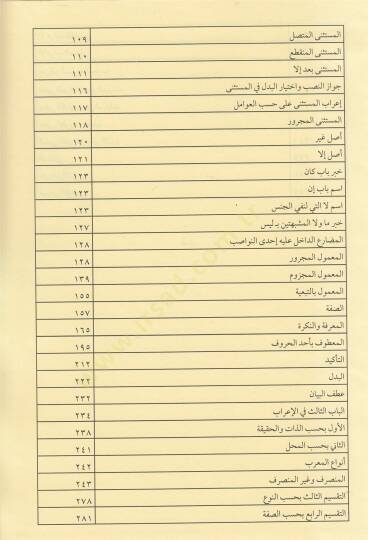 المستثنى المتصل ١٠٩
المستثنى المنقطع ١١٠
المستثنى بعد إلا ١١١
جواز النصب واختيار البدل في المستثنى ١١٦
إعراب المستثنى على حسب العوامل ١١٧
المستثنى المجرور ١١٨
أصل غير ١٢٠
أصل إلا ١٢١
خبر باب كان ١٢٣
اسم باب إن ١٢٣
اسم لا التي لنفي الجنس ١٢٣
خبر ما ولا المشبهتين بـ ليس ١٢٧
المضارع الداخل عليه إحدى النواصب ١٢٨
المعمول المجرور ١٢٨
المعمول المجزوم ١٣٩
المعمول بالتبعية ١٥٥
الصفة ١٥٧
المعرفة والنكرة ١٦٥
المعطوف بأحد الحروف ١٩٥
التأكيد ٢١٢
البدل ٢٢٢
عطف البيان ٢٣٢
الباب الثالث في الإعراب ٢٣٤
الأول بحسب الذات والحقيقة ٢٣٨
الثاني بحسب المحل ٢٤١
أنواع المعرب ٢٤٢
المنصرف وغير المنصرف ٢٤٣
التقسيم الثالث بحسب النوع ٢٧٨
التقسيم الرابع بحسب الصفة ٢٨١